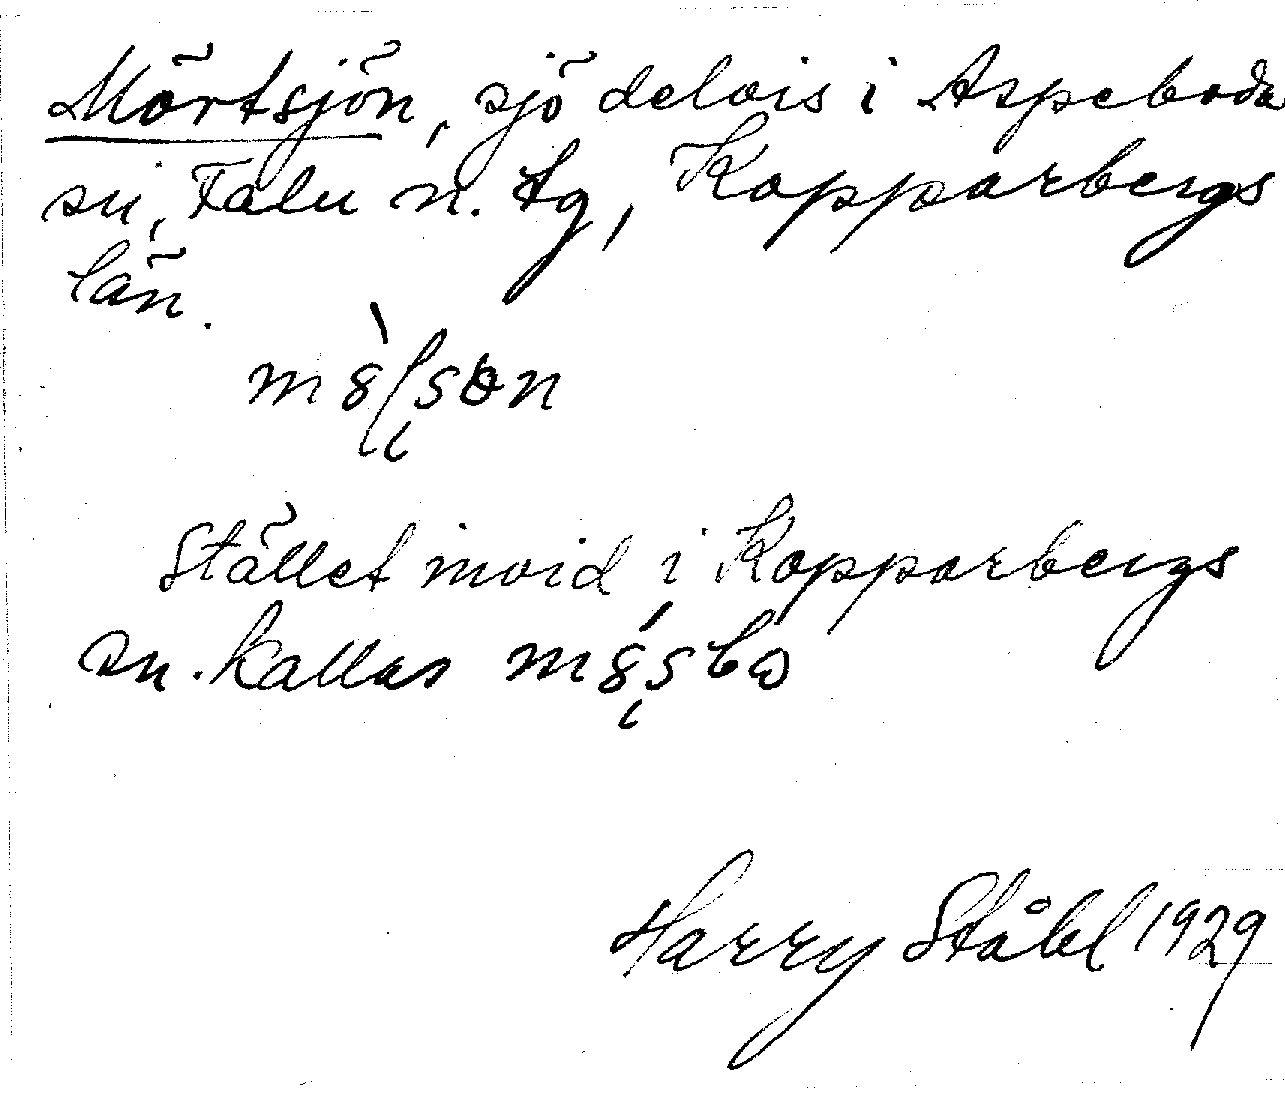 Mörtsjön, sjö delvis i Aspeboda
sn, Falu n. tg, Kopparbergs
län.
Stället invid, i Kopparbergs
sn. kallas
Harry Ståhl 1929